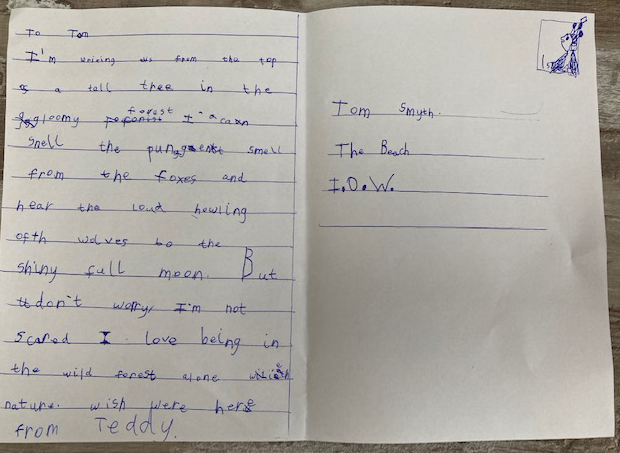 To Tom
I'm writing us from the top
os a tall thee in the
gloomy forest I a can
Snell the pungent smell
from the foxes and
hear the loud howling
ofth wolves to the
shiny full moon. But
don't worry, I'm not
scared I love being in
the wild forest alone with
nature. wish were here
from Teddy.
Tom Smyth.
The Beach
I.O.W.